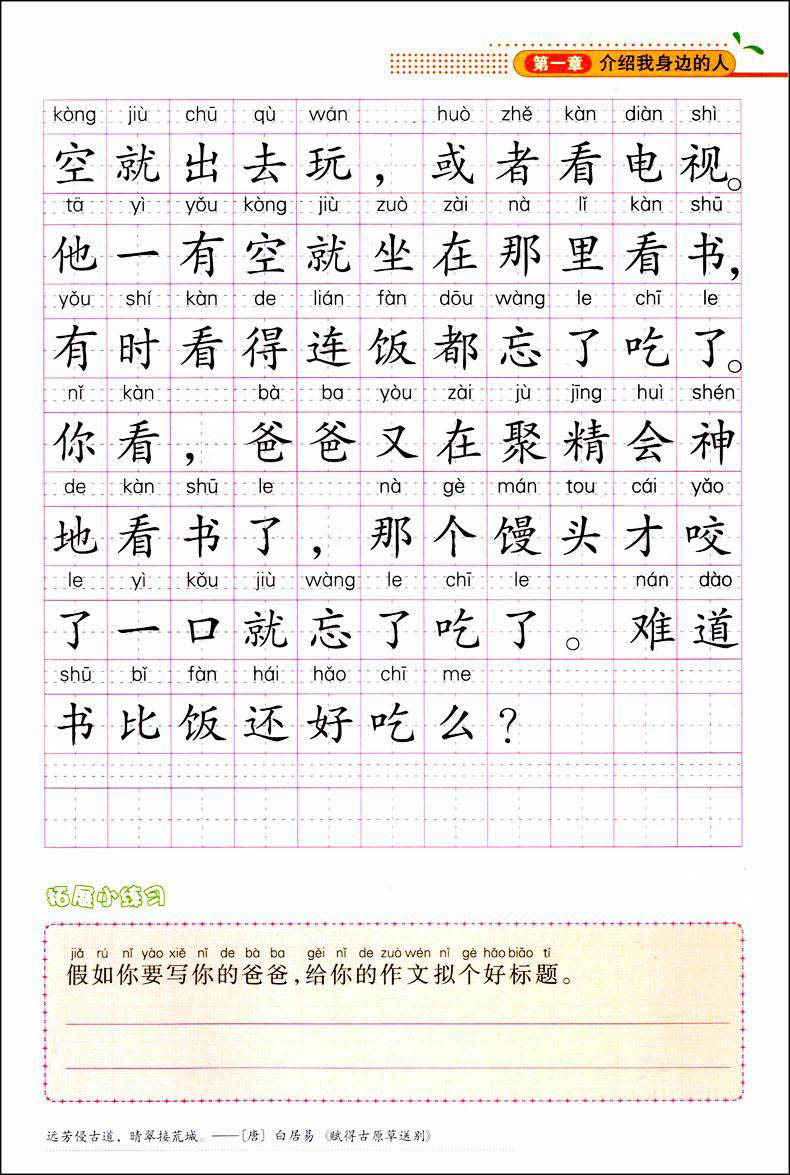 第一章 介绍我身边的人
kòng jiù chū qù wán huò zhě kàn diàn shì
空就出去玩，或者看电视。
tā yì yǒu kòng jiù zuò zài nà lǐ kàn shū
他一有空就坐在那里看书，
yǒu shí kàn de lián fàn dōu wàng le chī le
有时看得连饭都忘了吃了。
nǐ kàn bà ba yòu zài jù jīng huì shén
你看，爸爸又在聚精会神
de kàn shū le nà gè mán tou cái yǎo
地看书了，那个馒头才咬
le yì kǒu jiù wàng le chī le nán dào
了一口就忘了吃了。难道
shū bǐ fàn hái hǎo chī me
书比饭还好吃么？
拓展小练习
jiǎ rú nǐ yào xiě nǐ de bà ba gěi nǐ de zuò wén nǐ gè hǎo biāo tí
假如你要写你的爸爸，给你的作文拟个好标题。
远芳侵古道，晴翠接荒城。——〔唐〕白居易《赋得古原草送别》